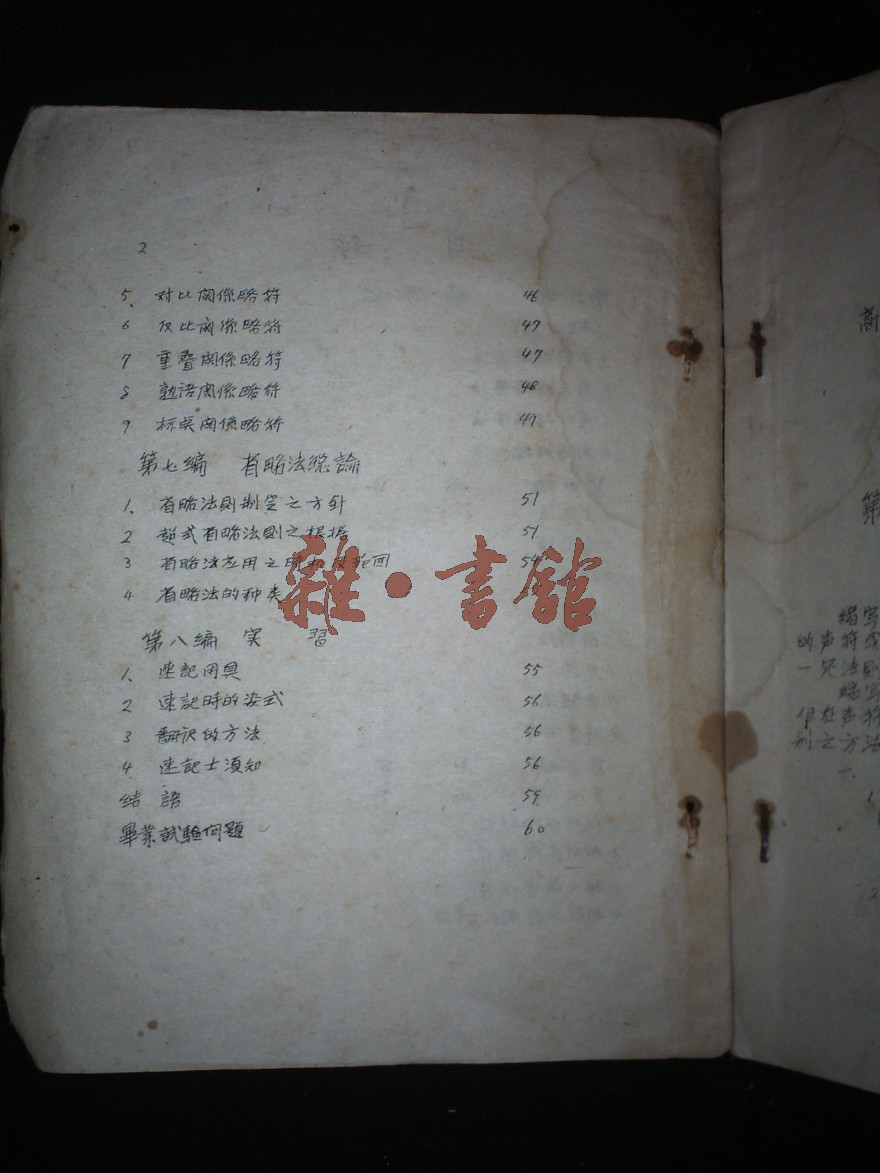 2
5、 对比関係略符 46
6 反比関係略符 47
7 重疊関係略符 47
8 熟语関係略符 48
9 标点関係略符 49
第七編 省略法総論
1、 省略法則制定之方針 51
2 超式省略法則之根据 51
3 省略法应用之 范囬
4 省略法的种类
雜·書館
第八編 実 習
1、 速記用具 55
2 速記時的姿式 56
3 翻訳的方法 56
4 速記士須知 56
结 語 59
畢業試驗问題 60
第
的声符或
一 法則
編写
声符
别之方法
一、